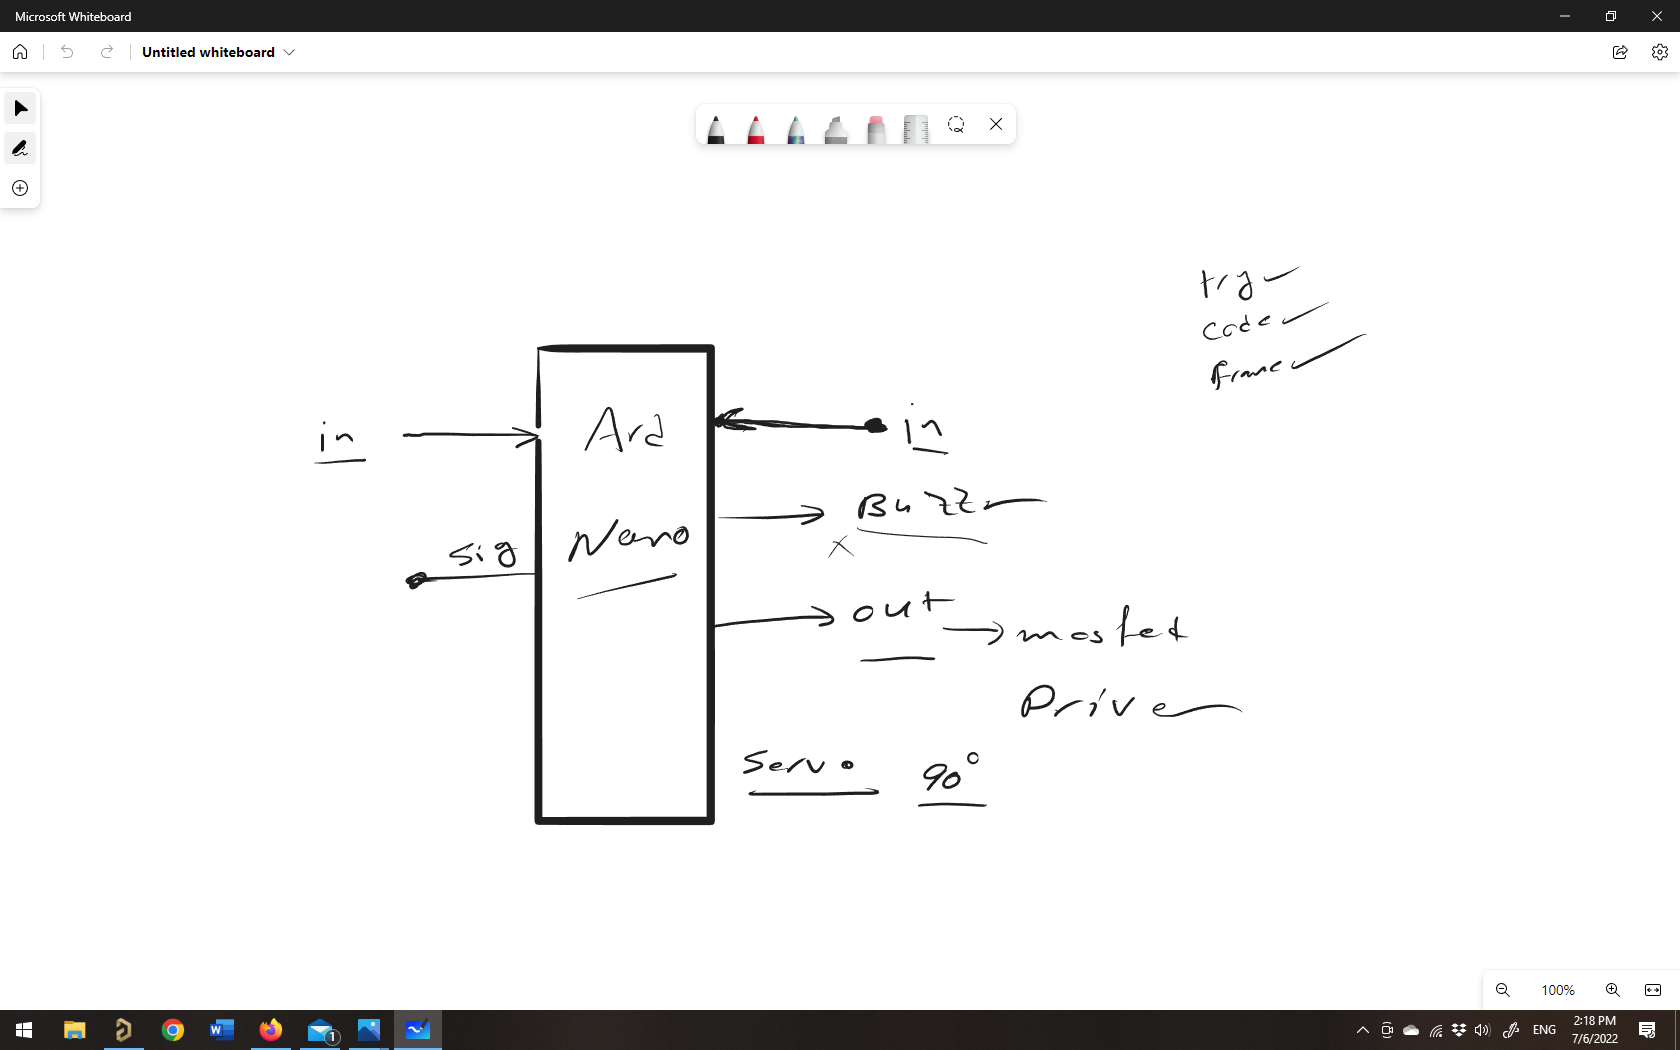 Microsoft Whiteboard
Untitled whiteboard
try
code
frame
in
Ard
in
Buzzer
sig
Nano
out
mosfet
Driver
Servo 90°
100%
1
ENG
2:18 PM
7/6/2022